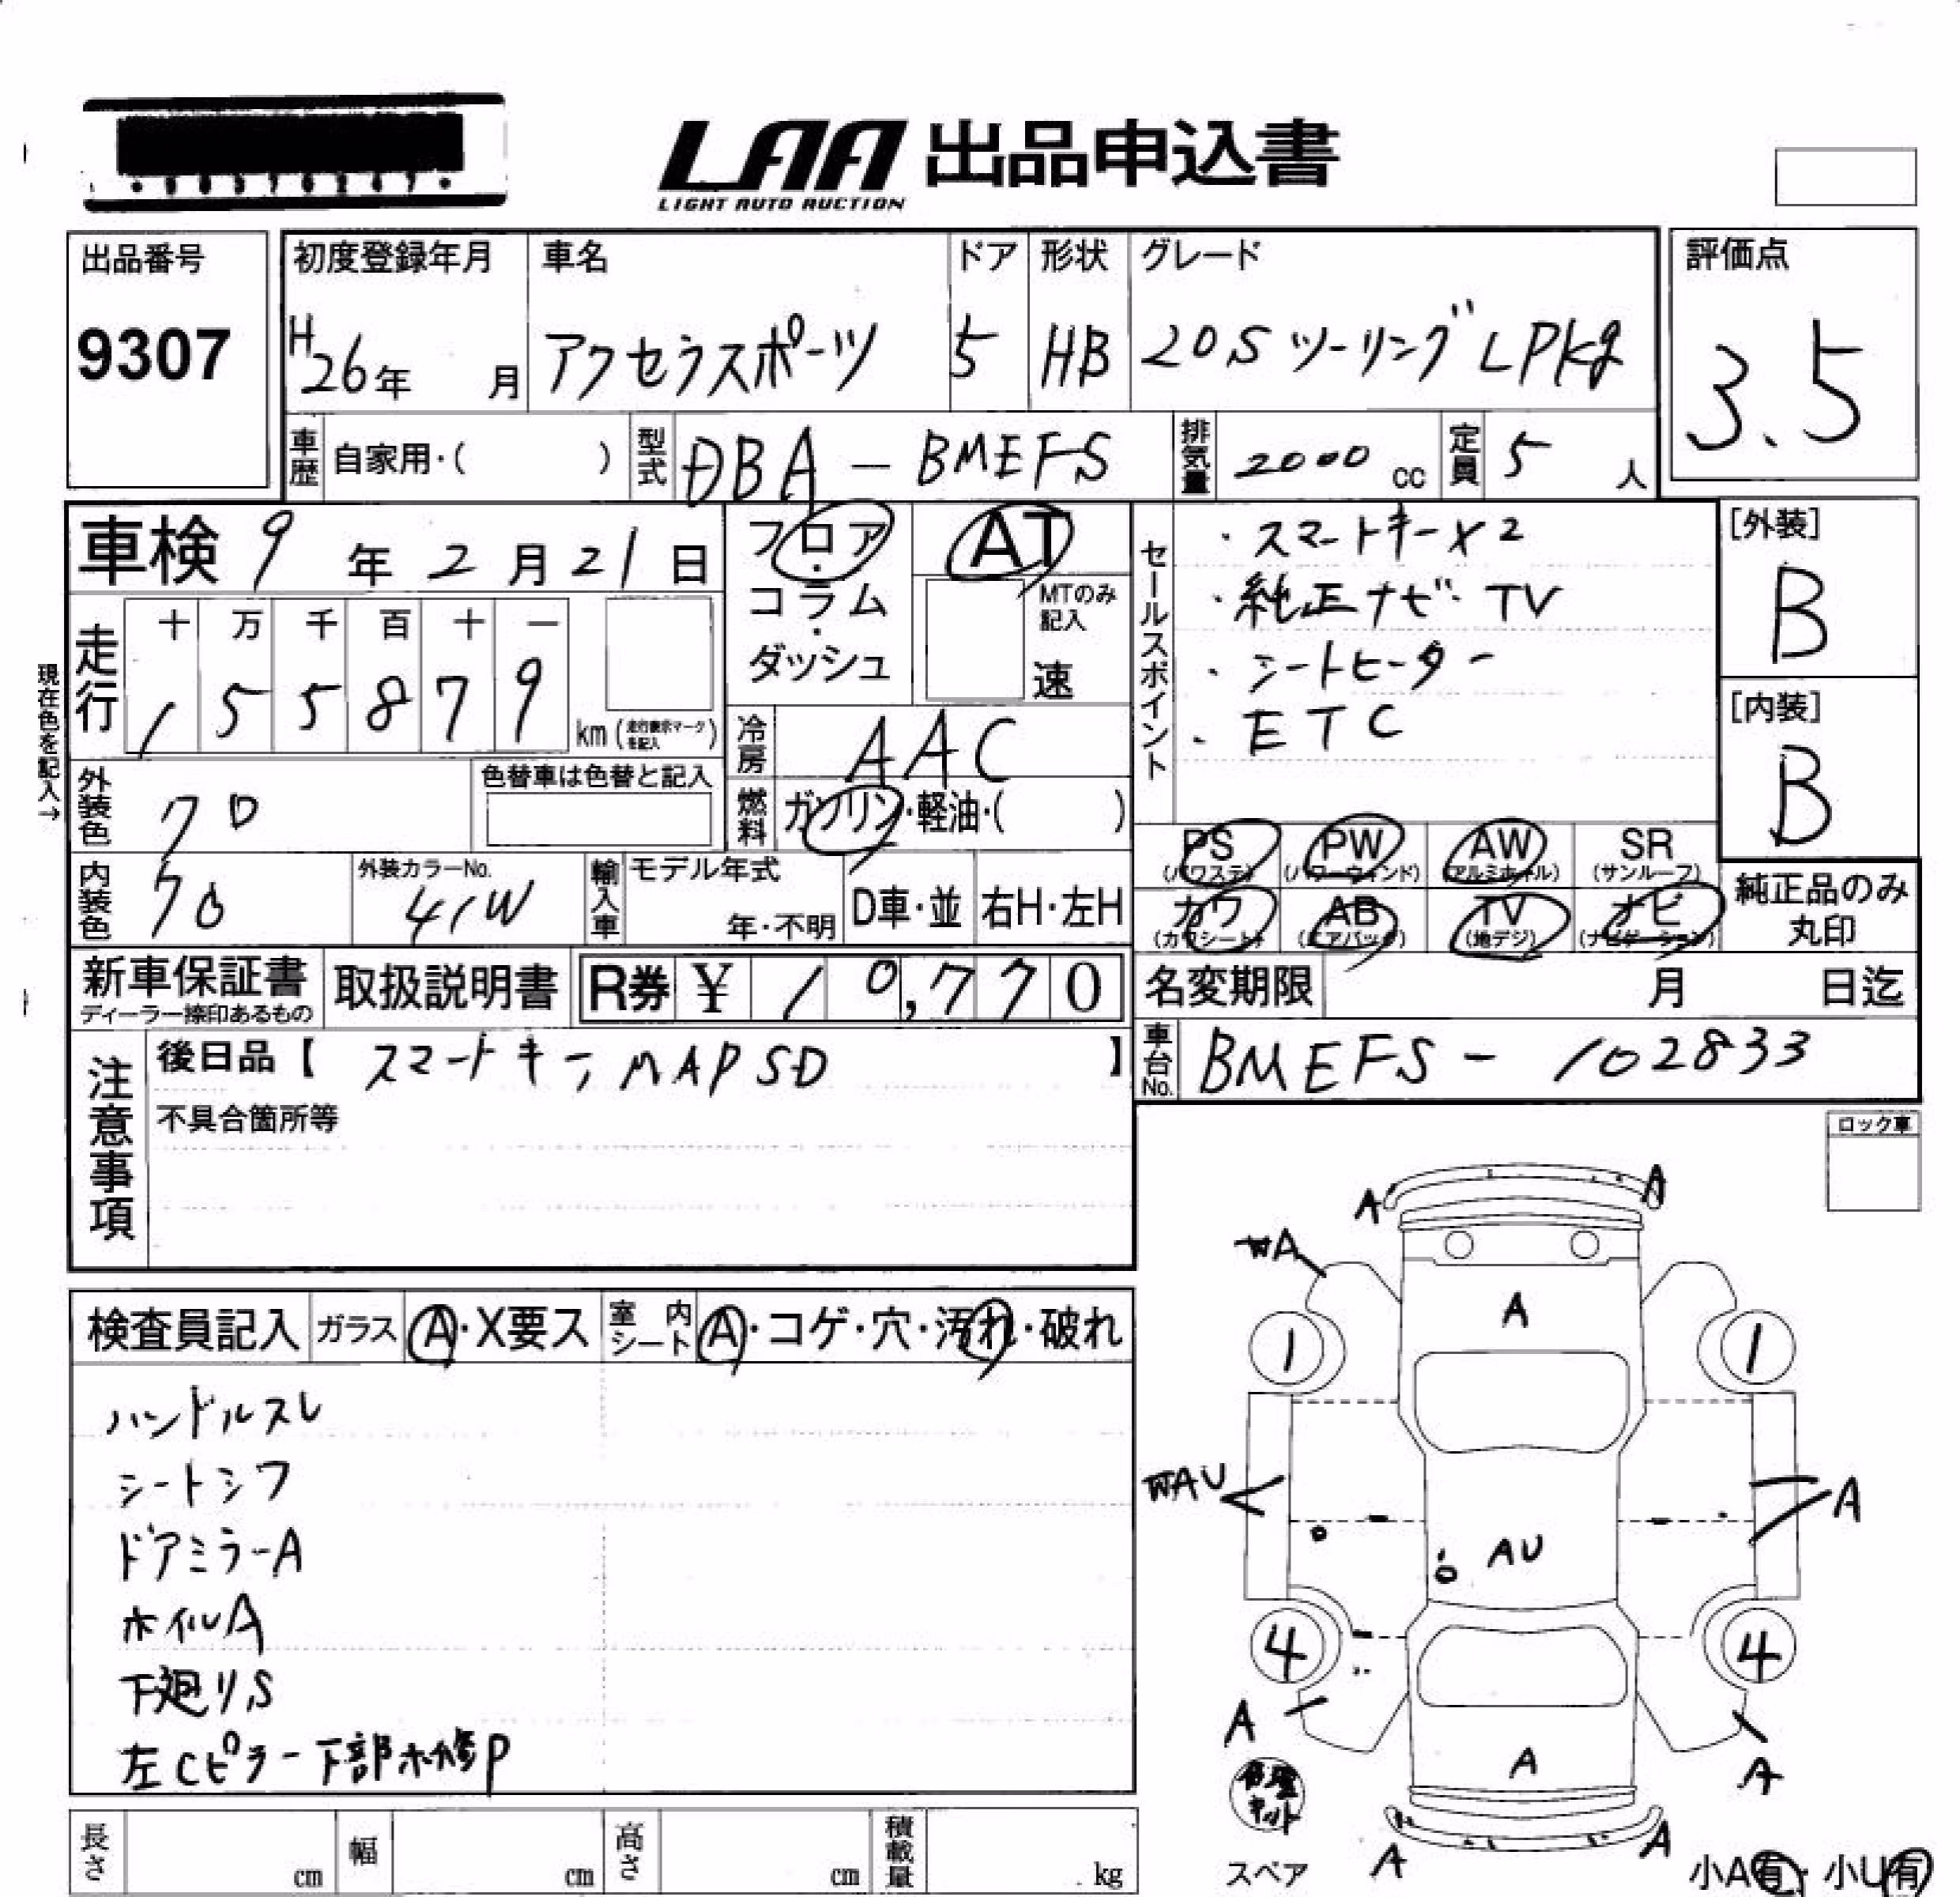 LAA 出品申込書
LIGHT AUTO AUCTION
出品番号
9307
初度登録年月
H26年 月
車名
アクセラスポーツ
ドア
5
形状
HB
グレード
20Sツーリング LPkg
評価点
3.5
車歴 自家用・( )
型式 DBA-BMEFS
排気量 2000 cc
定員 5 人
車検 9年2月21日
フロア・コラム・ダッシュ
AT
MTのみ記入
速
セールスポイント
・スマートキーX2
・純正ナビ・TV
・シートヒーター
・ETC
[外装]
B
[内装]
B
現在色を記入→
走行
十 万 千 百 十 一
1 5 5 8 7 9
km (走行表示マークを記入)
冷房 AAC
燃料 ガソリン・軽油・( )
外装色 クロ
色替車は色替と記入
内装色 クロ
外装カラーNo.
41W
輸入車
モデル年式
年・不明
D車・並
右H・左H
PS (パワステ)
PW (パワーウィンド)
AW (アルミホイル)
SR (サンルーフ)
カワ (カワシート)
AB (エアバック)
TV (地デジ)
ナビ (ナビゲーション)
純正品のみ丸印
新車保証書
ディーラー捺印あるもの
取扱説明書
R券 ¥ 10,770
名変期限 月 日迄
車台No. BMEFS-102833
注意事項
後日品【 スマートキー, MAPSD 】
不具合箇所等
ロック車
検査員記入
ガラス A・X要ス
室内シート A・コゲ・穴・汚れ・破れ
ハンドルスレ
シートシワ
ドアミラーA
ホイルA
下廻りS
左Cピラー下部補修P
A A
WA
A
1 1
WAU
A
AU
4 4
A
A
A
修理キット
スペア
A A
小A有・小U有
長さ cm
幅 cm
高さ cm
積載量 kg